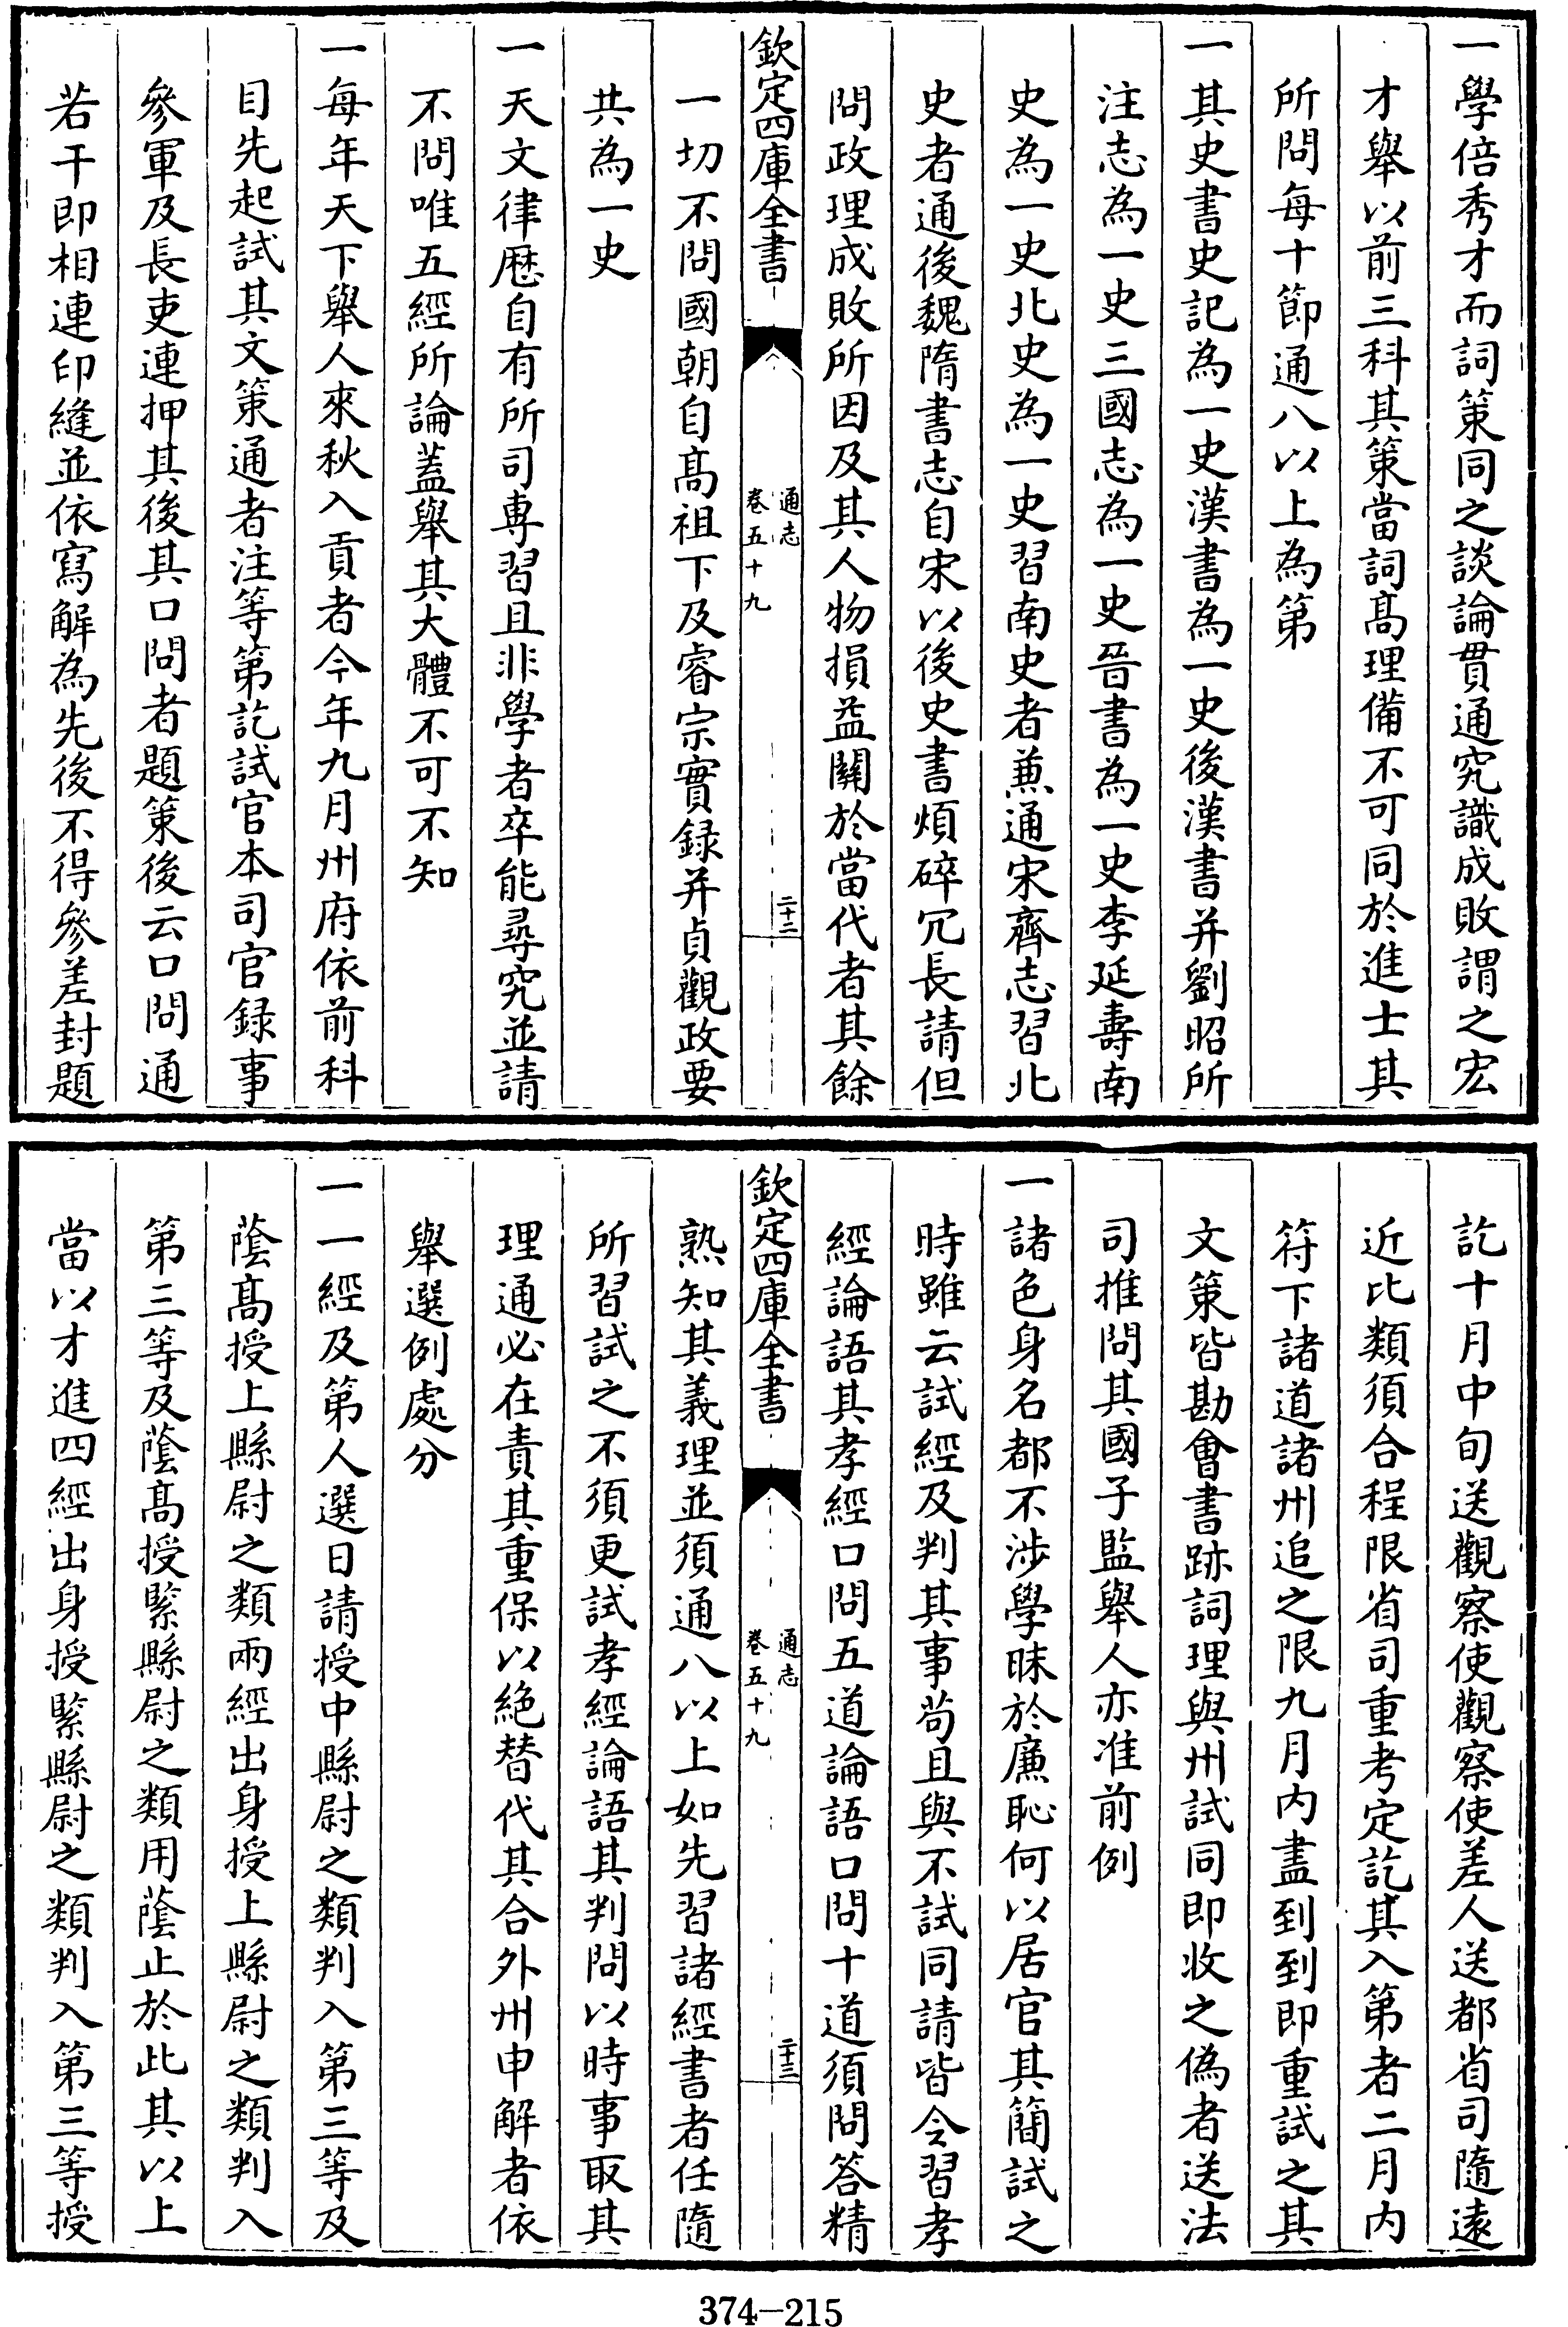 一學倍秀才而詞策同之談論貫通究識成敗謂之宏
才舉以前三科其策當詞髙理備不可同於進士其
所問每十節通八以上為第
一其史書史記為一史漢書為一史後漢書并劉昭所
注志為一史三國志為一史晉書為一史李延壽南
史為一史北史為一史習南史者兼通宋齊志習北
史者通後魏隋書志自宋以後史書煩碎冗長請但
問政理成敗所因及其人物損益關於當代者其餘
欽定四庫全書
通志
卷五十九
二十二
一切不問國朝自髙祖下及睿宗實録并貞觀政要
共為一史
一天文律厯自有所司専習且非學者卒能尋究並請
不問唯五經所論蓋舉其大體不可不知
一每年天下舉人來秋入貢者今年九月州府依前科
目先起試其文策通者注等第訖試官本司官録事
參軍及長吏連押其後其口問者題策後云口問通
若干即相連印縫並依寫解為先後不得參差封題
訖十月中旬送觀察使觀察使差人送都省司隨逺
近比類須合程限省司重考定訖其入第者二月内
符下諸道諸州追之限九月内盡到到即重試之其
文策皆勘㑹書跡詞理與州試同即收之偽者送法
司推問其國子監舉人亦准前例
一諸色身名都不渉學昧於廉恥何以居官其簡試之
時雖云試經及判其事苟且與不試同請皆令習孝
經論語其孝經口問五道論語口問十道須問答精
欽定四庫全書
通志
卷五十九
二十三
熟知其義理並須通八以上如先習諸經書者任隨
所習試之不須更試孝經論語其判問以時事取其
理通必在責其重保以絶替代其合外州申解者依
舉選例處分
一一經及第人選日請授中縣尉之類判入第三等及
䕃髙授上縣尉之類兩經出身授上縣尉之類判入
第三等及䕃髙授緊縣尉之類用䕃止於此其以上
當以才進四經出身授緊縣尉之類判入第三等授
374-215